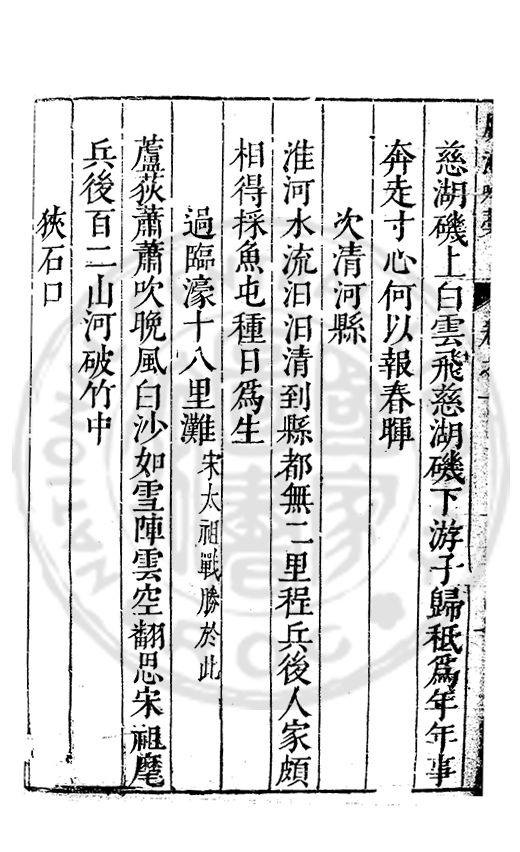 慈湖磯上白雲飛慈湖磯下游子歸秪爲年年事
奔走寸心何以報春暉
次清河縣
淮河水流汩汩清到縣都無二里程兵後人家頗
相得採魚屯種日爲生
過臨濠十八里灘宋太祖戰勝於此
蘆荻蕭蕭吹晚風白沙如雪陣雲空翻思宋祖麾
兵後百二山河破竹中
狹石口